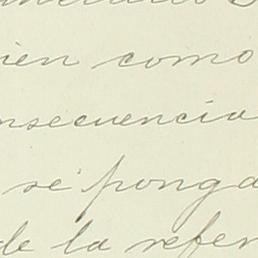 ien como
nsecuencia
se ponga
de la refer